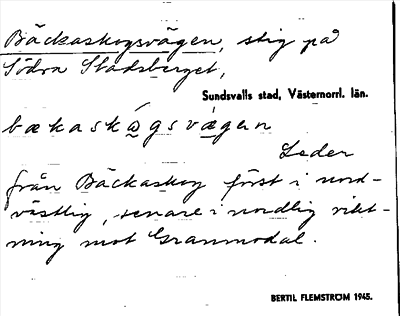 Bäckaskogsvägen, stig på
Södra Stadsberget,
Sundsvalls stad, Västernorrl. län.
bækaskógsvægen
Leder
från Bäckaskog först i nord-
västlig, senare i nordlig rikt-
ning mot Granmodal.
BERTIL FLEMSTRÖM 1945.